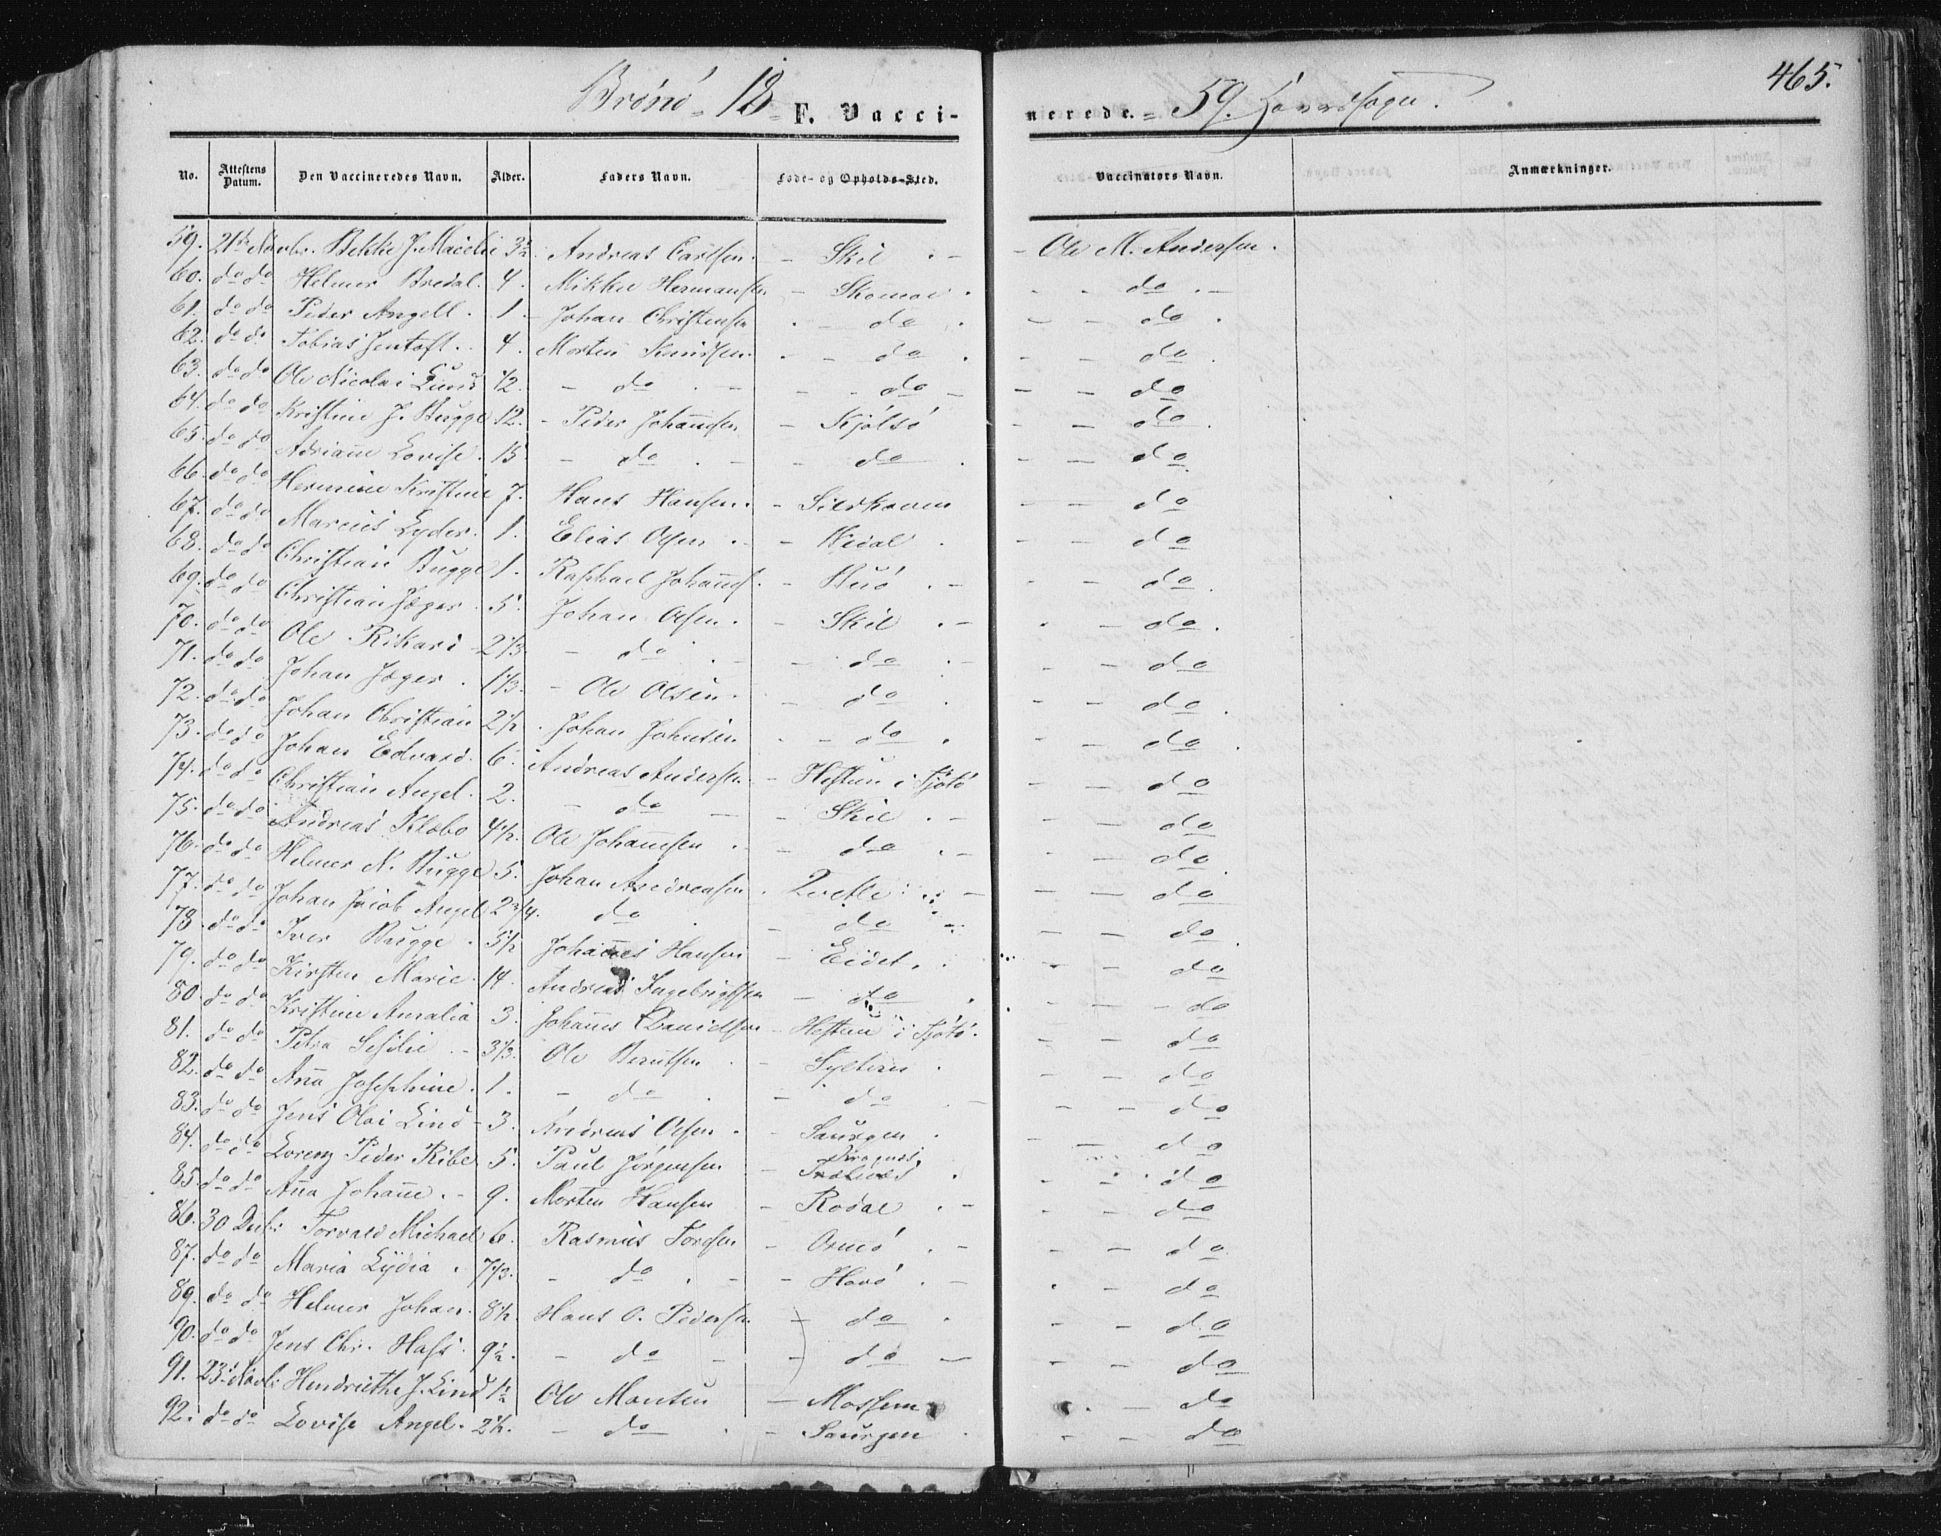 Brønø 18 F. Vaccinerede. 59. Hovedsogn. 465.
No. Attestens Datum. Den Vaccineredes Navn. Alder. Faders Navn. Føde- og Opholds-Sted. Vaccinators Navn. Anmærkninger.
59. 21de Novbr. J. 3½ Andreas Carlsen. - Skil - Ole M. Andersen.
60. do do Helmer Bredal. 4. Mikkel Hermansen - Skomoe. - do
61. do do Peder Angell. 1. Johan Christensen - do - do
62. do do Tobias Jentoft. 4. Morten Knudsen. - do - do
63. do do Ole Nicolai Lund ½. - do - do - do
64. do do Kristine J. Bugge 12. - Peder Johansen - Kjølsø - do
65. do do Adriane Lovise. 15 - do - do - do
66. do do Hermine Kristine 7. Hans Hansen. - Sildhavn - do
67. do do Marcus Lyder. 1. Elias Olsen - Nidal - do
68. do do Christian Bugge 1. Raphael Johans. - Huø - do
69. do do Christian Jæger. 5. Johan Olsen. - Skil - do
70. do do Ole Rikard 2⅓ - do - do - do
71. do do Johan Jæger. 1⅓. - Ole Olsen. - do - do
72. do do Johan Christian 2½. Johan Johnsen. - do - do
73. do do Johan Edvard. 6. Andreas Andersen - Hestun i Tjøtø - do
74. do do Christian Angel. 2. - do - Skil - do
75. do do Andreas Klæbo 4½. Ole Johannesen - do - do
76. do do Helmer N. Bugge 5. Johan Andreasen. - - do
77. do do Johan Jacob Angel 2¾. do - do - do
78. do do Iver Bugge. 5½ Johannes Hansen - Eidet. - do
79. do do Kirsten Marie. 14. Andreas Ingebrigtsen - do - do
80. do do Kristine Amalia 3. Johannes Danielsen - Hestun i Tjøtø. - do
81. do do Petra Sesilie 3⅓. Ole Berntsen - Sylteren - do
82. do do Ana Josephine. 1. - do - do - do
83. do do Jens Olai Lind - 3. Andreas Olsen - Saurgen - do
84. do do Lorenz Peder Ribe 5. Paul Jørgensen - - do
85. do do Ana Johane. - 9. Morten Hansen - Rodal - do
86. 30 Decbr: Torvald Michael 6. Rasmus Tordsen - Ormø - do
87. do do Maria Lydia. 7⅓. - do - Havø - do
89. do do Helmer Johan. 8½. Hans O. Pedersen - do - do
90. do do Jens Chr. Hass. 9½. - do - do - do
91. 23: Novbr: Hendriethe J. Lind 1½ Ole Monsen - Mossem - do
92. do do Lovise Angel. 2½. - do - Saurgen - do